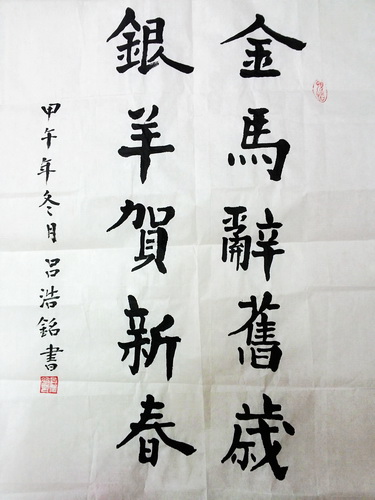 金馬辭舊歲
銀羊賀新春
甲午年冬月呂浩銘書